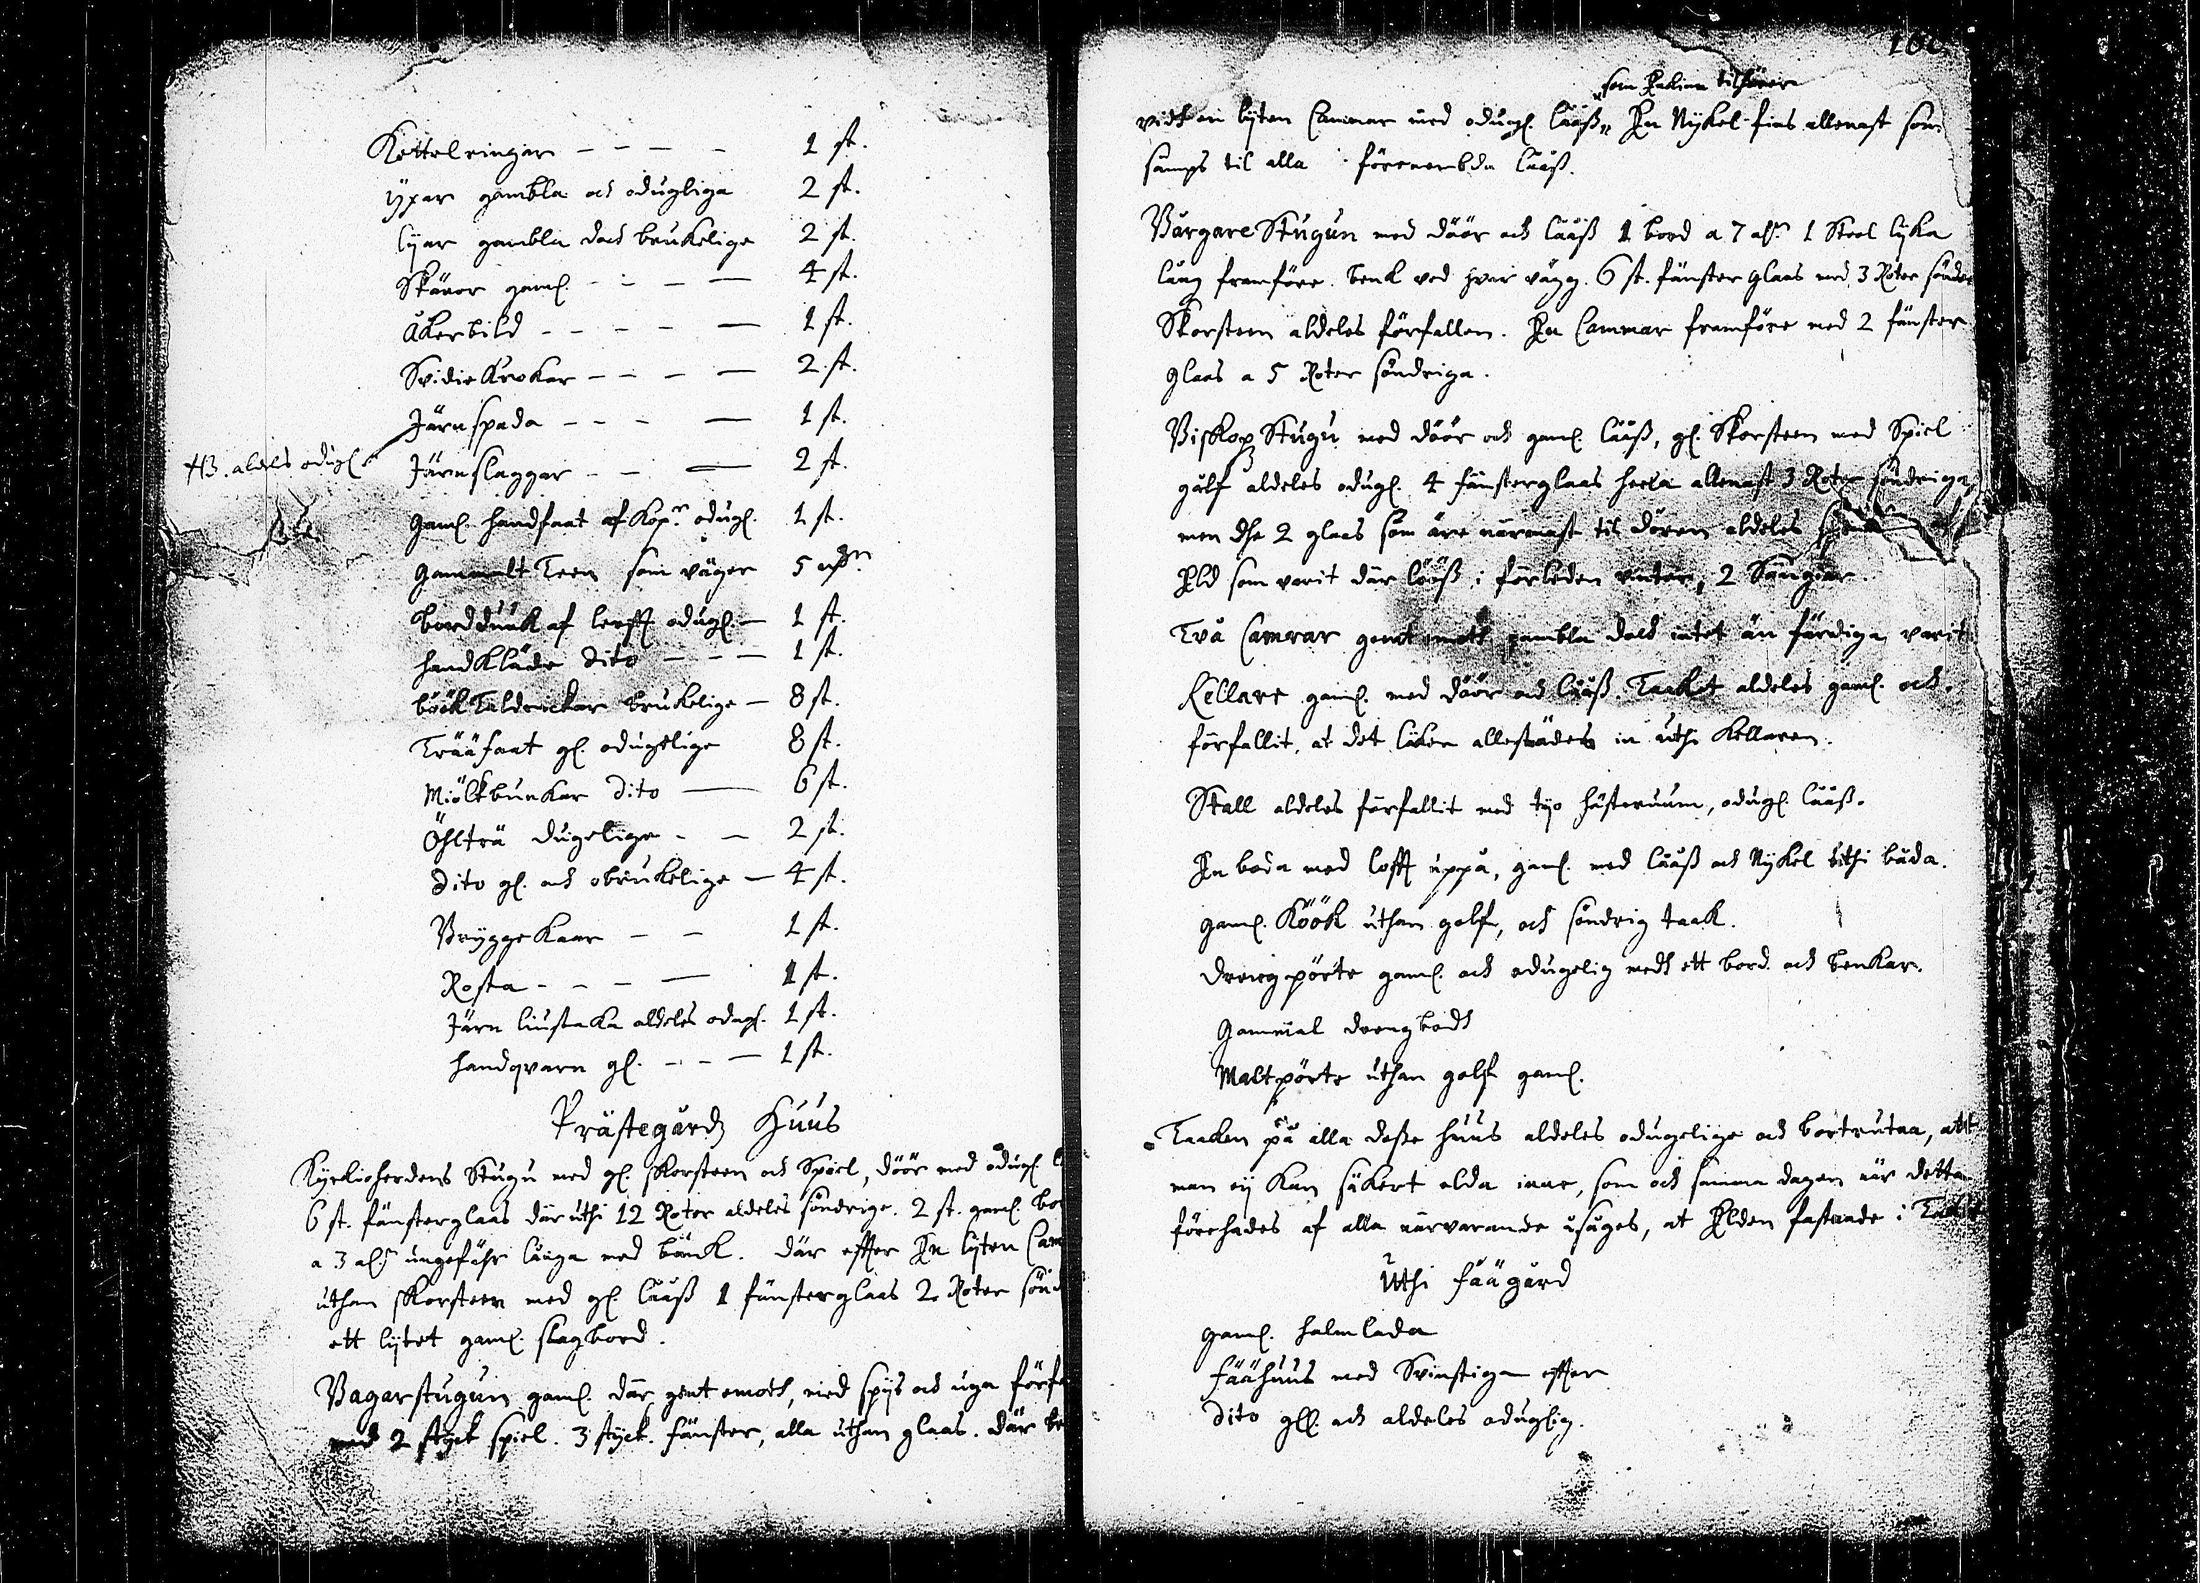 Kettelringar - - - - 1 st.
yxar gambla och odugliga 2 st.
lyar gambla doch brukelige 2 st.
Skäror gaml. - - - - 4 st.
Åkerbild - - - - - 1 st.
Svidiekrokar - - - - 2 st.
Järnspada - - - - 1 st.
NB. aldels odugl.
Järnslaggar - - - 2 st.
Gaml. handfaat af Kop.r odugl. 1 st.
Gammalt Teen som väger 5
bordduuk af lerfft odugl. - 1 st.
handkläde dito - - - 1 st.
böök Taldrickar brukelige - 8 st.
Trääfaat gl. odugelige 8 st.
Miölkbunkar dito - 6 st.
Öhlträ dugelige - - 2 st.
dito gl. och obrukelige - 4 st.
Bryggekaar - - 1 st.
Rosta - - - - 1 st.
Järn liustaka aldeles odugl. 1 st.
handqvarn gl. - - - 1 st.
Prästegårdz Huus
Kyrkioherdens Stugu med gl. skorsteen och Spiel, döör med odugl.
6 st. fänsterglaas där uthi 12 Rotor aldeles söndrige. 2 st. gaml.
a 3 al.r ungefähr långa med bänck. där effter En lyten
uthan skorsteen med gl. lååß 1 fänsterglaas 2 Rotor
ett lytet gaml. slagbord.
Bagarstugun gaml. där gent emoth, med spijs och ugn
med 2 styck spiel. 3 styck. fänster, alla uthan glaas. där
som Enkian tilhörer
vidh en lyten Cammar med odugl. lååß En Nykel fins allenast som
samps til alla förenembda lååß.
BårgareStugun med döör och lååß 1 bord a 7 al.r 1 Stool lyka
lång framföre. benk ved hvar vägg. 6 st. fänster glaas med 3 Rotor
Skorsteen aldeles förfallen. En Cammar framföre med 2 fänster
glaas a 5 Rotor söndriga.
Biskopz Stugu med döör och gaml. lååß, gl. Skorsteen med Spiel
gålf aldeles odugl. 4 fänsterglaas heela allenast 3 Rotor söndriga,
men dhe 2 glaas som äre närmast til dören aldeles
Eld som varit där lööß i förleden vinter, 2 Sängiar.
Två Camrar gent emoth gambla doch intet än färdiga varit
Kellare gaml. med döör och lååß. Taaket aldeles gaml. och
förfallit, at det läker allestädes in uthi Kellaren.
Stall aldeles förfallit med tijo hästeruum, odugl. lååß.
En boda med lofft uppå, gaml. med lååß och Nykel uthi båda.
gaml. Köök uthan golf, och söndrig taak.
drengpörte gaml. och odugelig medh ett bord och benkar.
Gammal drengbodh
Maltpörte uthan golf gaml.
Taaken på alla deße huus aldeles odugelige och bortrutna, att
man ej kan säkert elda inne, som och samma dagen när detta
förehades af alla närvarande usåges, at Elden fastnade i
Uthi Fäägård
gaml. halmlada
Fäähuus med Svinstigan effter
dito gll. och aldeles oduglig.